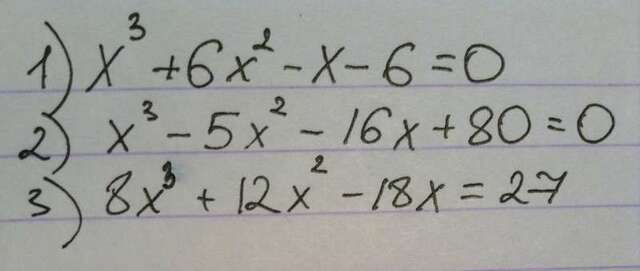 1) x³ + 6x² - x - 6 = 0
2) x³ - 5x² - 16x + 80 = 0
3) 8x³ + 12x² - 18x = 27